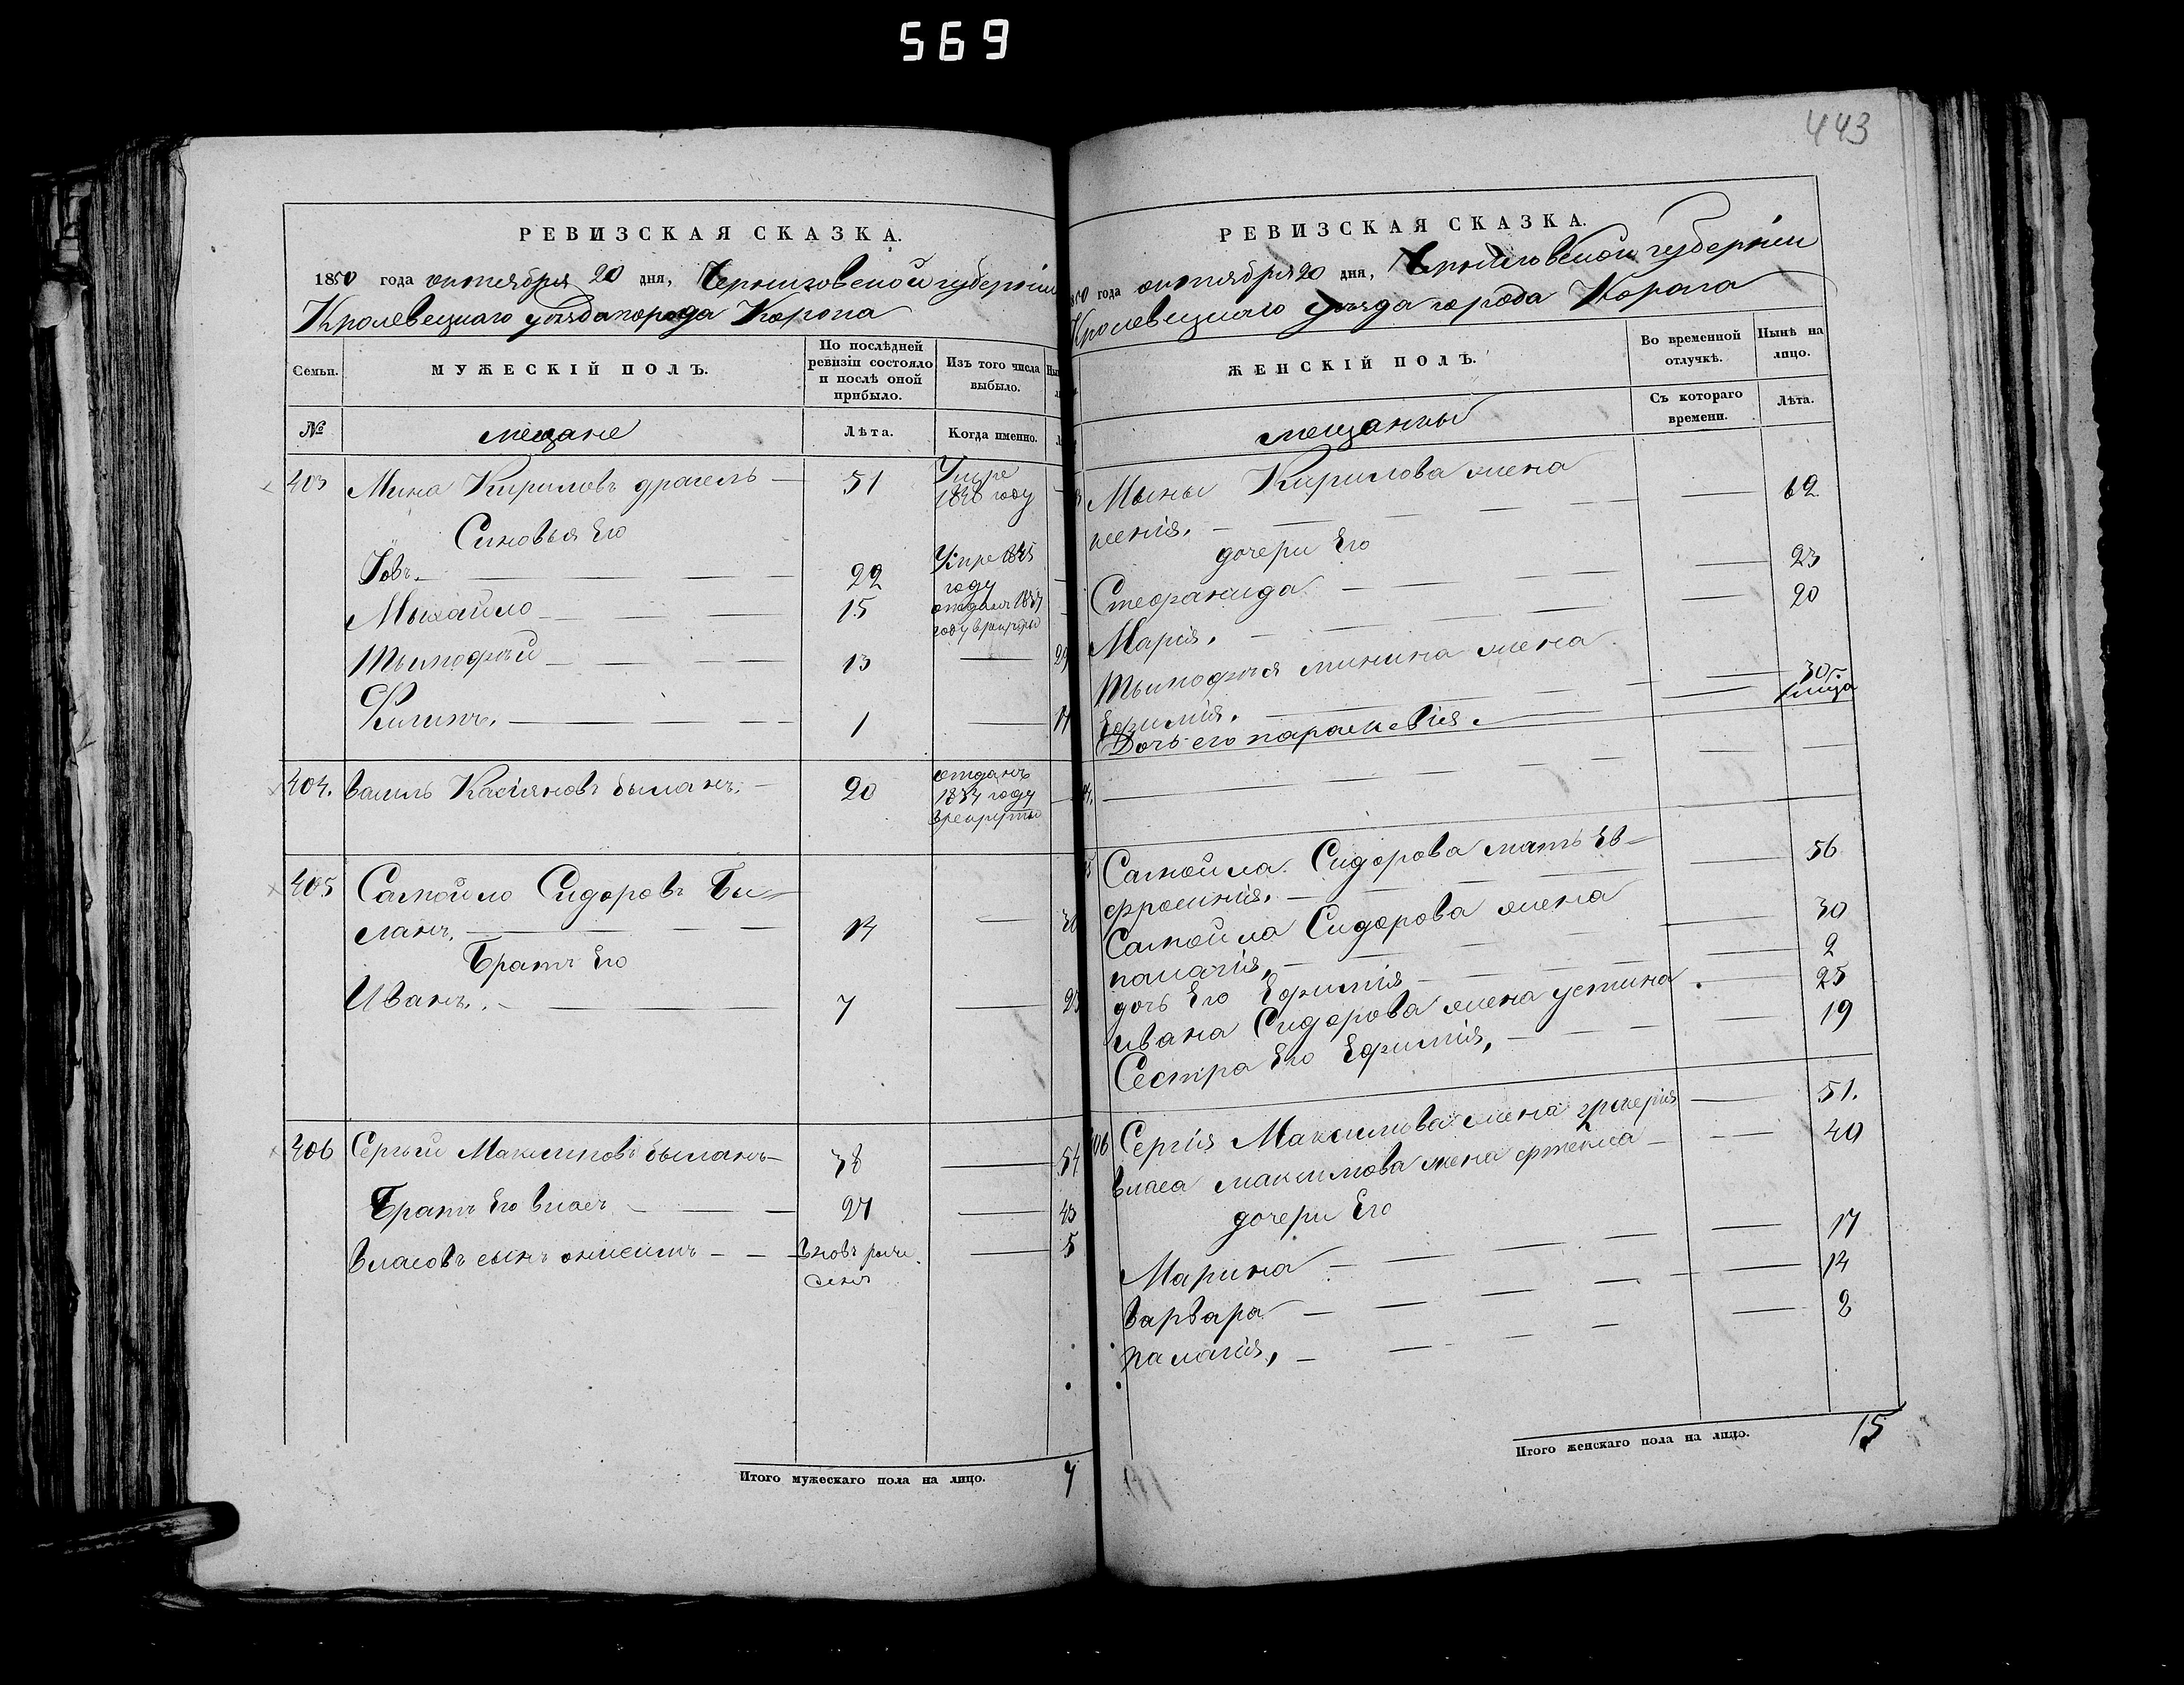 569
443
РЕВИЗСКАЯ СКАЗКА.
1850 года октября 20 дня, Черниговской губернiи
Кролевецкаго уѣзда города Коропа
Семьи.
МУЖЕСКIЙ ПОЛЪ.
По послѣдней ревизiи состояло и послѣ оной прибыло.
Изъ того числа выбыло.
№
мещане
Лѣта.
Когда именно.
403 Мина Кириловъ драгель 51 Умре 1840 году
Синовья Его
Iовъ. 22 Умре 1845 году
Мыхайло 15 отданъ 1837 году врекруты
Тымофѣй 13 29
Филипъ. 1 17
404. василь Касiяновъ быланъ. 20 отданъ 1834 году врекруты
405 Самойло Сидоровъ Бы-
ланъ. 14 30
Братъ Его
Иванъ. 7 23
406 Сергѣй Максимовъ быланъ 38 54
Братъ Его власъ 27 43
власовъ сынъ онисимъ вновь
5
Итого мужескаго пола на лицо. 7
РЕВИЗСКАЯ СКАЗКА.
1850 года октября 20 дня, Черниговской губернiи
Кролевецкаго уѣзда города Коропа
ЖЕНСКIЙ ПОЛЪ.
Во временной отлучкѣ.
Нынѣ на лицо.
мещанкы
Съ котораго времени.
Лѣта.
Мыны Кирилова жена
ксенiя. 62
дочери Его
Стефанида 23
Марiя. 20
Тымофѣя минина жена
Ефимiя. 30
Дочь его параскевiя.
Самойла Сидорова мать Ев-
фросинiя. 56
Самойла Сидорова жена
палагiя. 30
дочь Его Ефимiя 2
ивана Сидорова жена устина 25
Сестра Его Ефимiя, 19
406 Сергiя Максимова жена 51.
власа максимова жена 40
дочери Его
Марина 17
варвара 14
палагiя, 8
Итого женскаго пола на лицо. 15